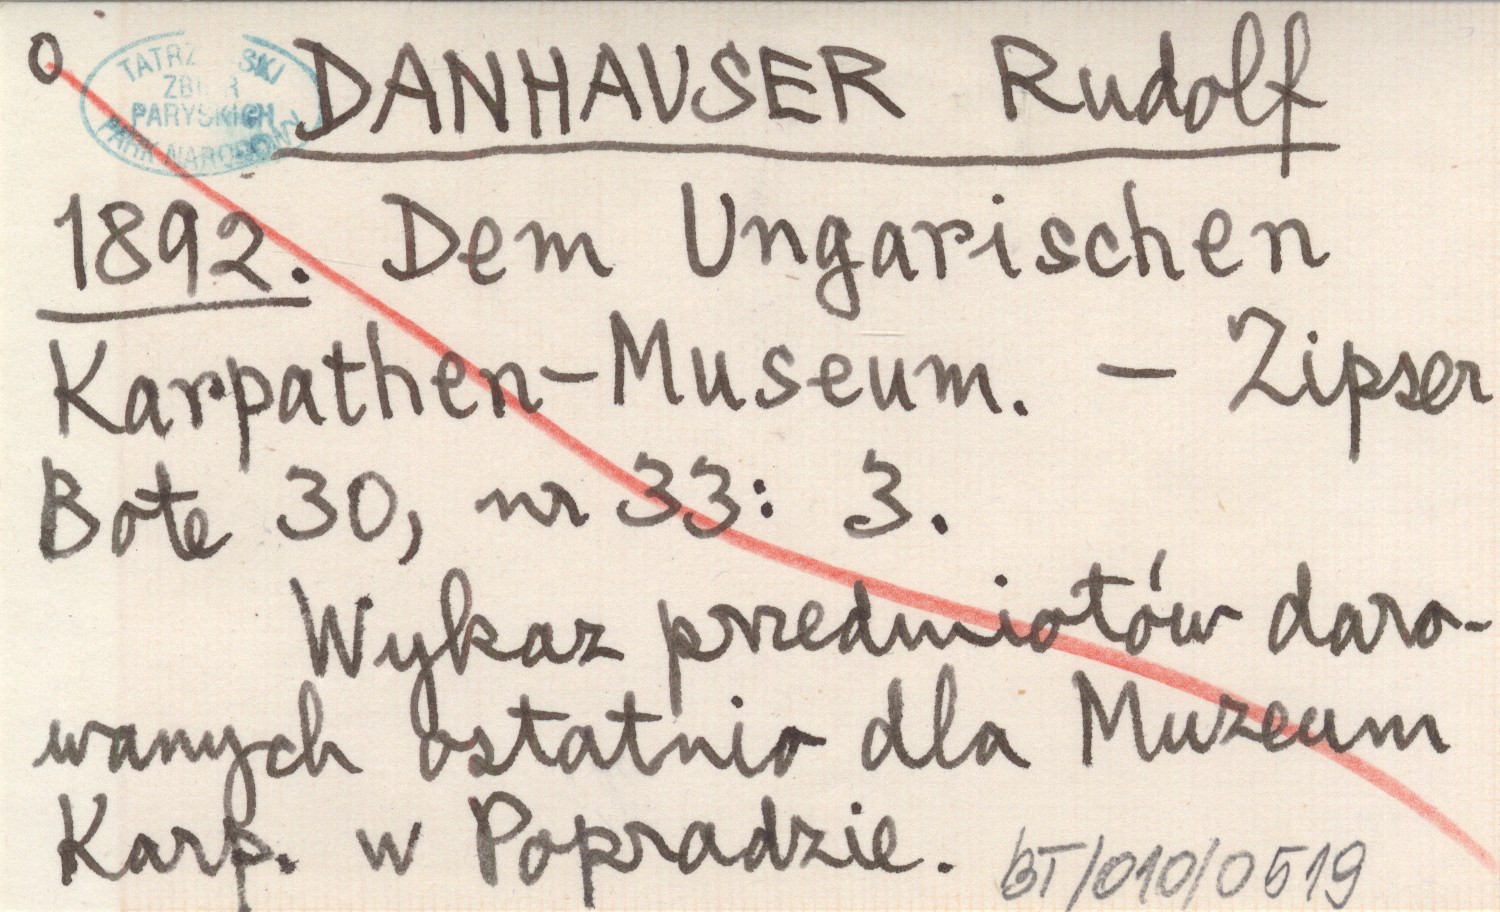 o
TATRZ SKI
ZB R
PARYSKICH
PARK NARODOWY
DANHAUSER Rudolf
1892. Dem Ungarischen
Karpathen-Museum. – Zipser
Bote 30, nr 33: 3.
Wykaz przedmiotów daro-
wanych ostatnio dla Muzeum
Karp. w Popradzie.
BT/010/0519